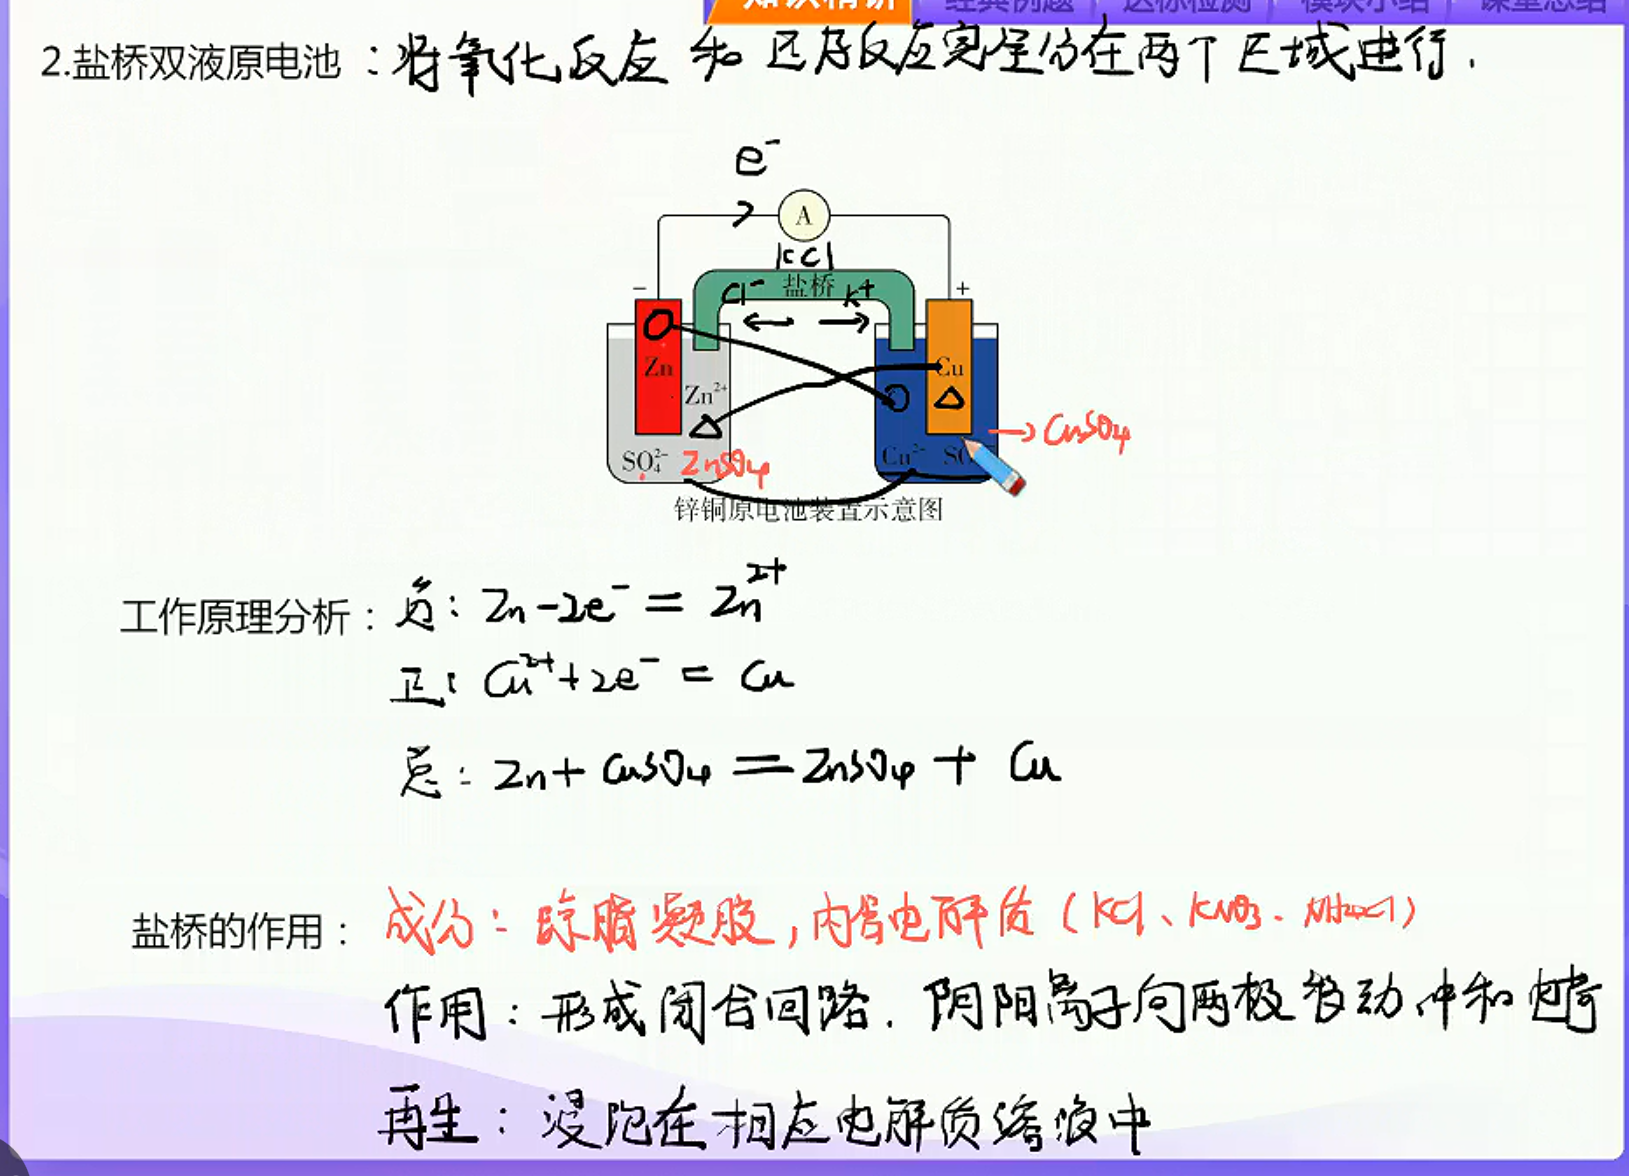 知识精讲 经典例题 达标检测 模块小结 课堂总结
2.盐桥双液原电池：将氧化反应和还原反应完全分在两个区域进行.
e⁻
A
KCl
盐桥
Cl⁻ K⁺
− +
Zn Cu
Zn²⁺
SO₄²⁻ ZnSO₄ Cu²⁺ SO
→ CuSO₄
锌铜原电池装置示意图
工作原理分析：负：Zn-2e⁻=Zn²⁺
正：Cu²⁺+2e⁻=Cu
总：Zn+CuSO₄=ZnSO₄+Cu
盐桥的作用：成分：琼脂凝胶,内含电解质(KCl、KNO₃、NH₄Cl)
作用：形成闭合回路.阴阳离子向两极移动中和电荷
再生：浸泡在相应电解质溶液中